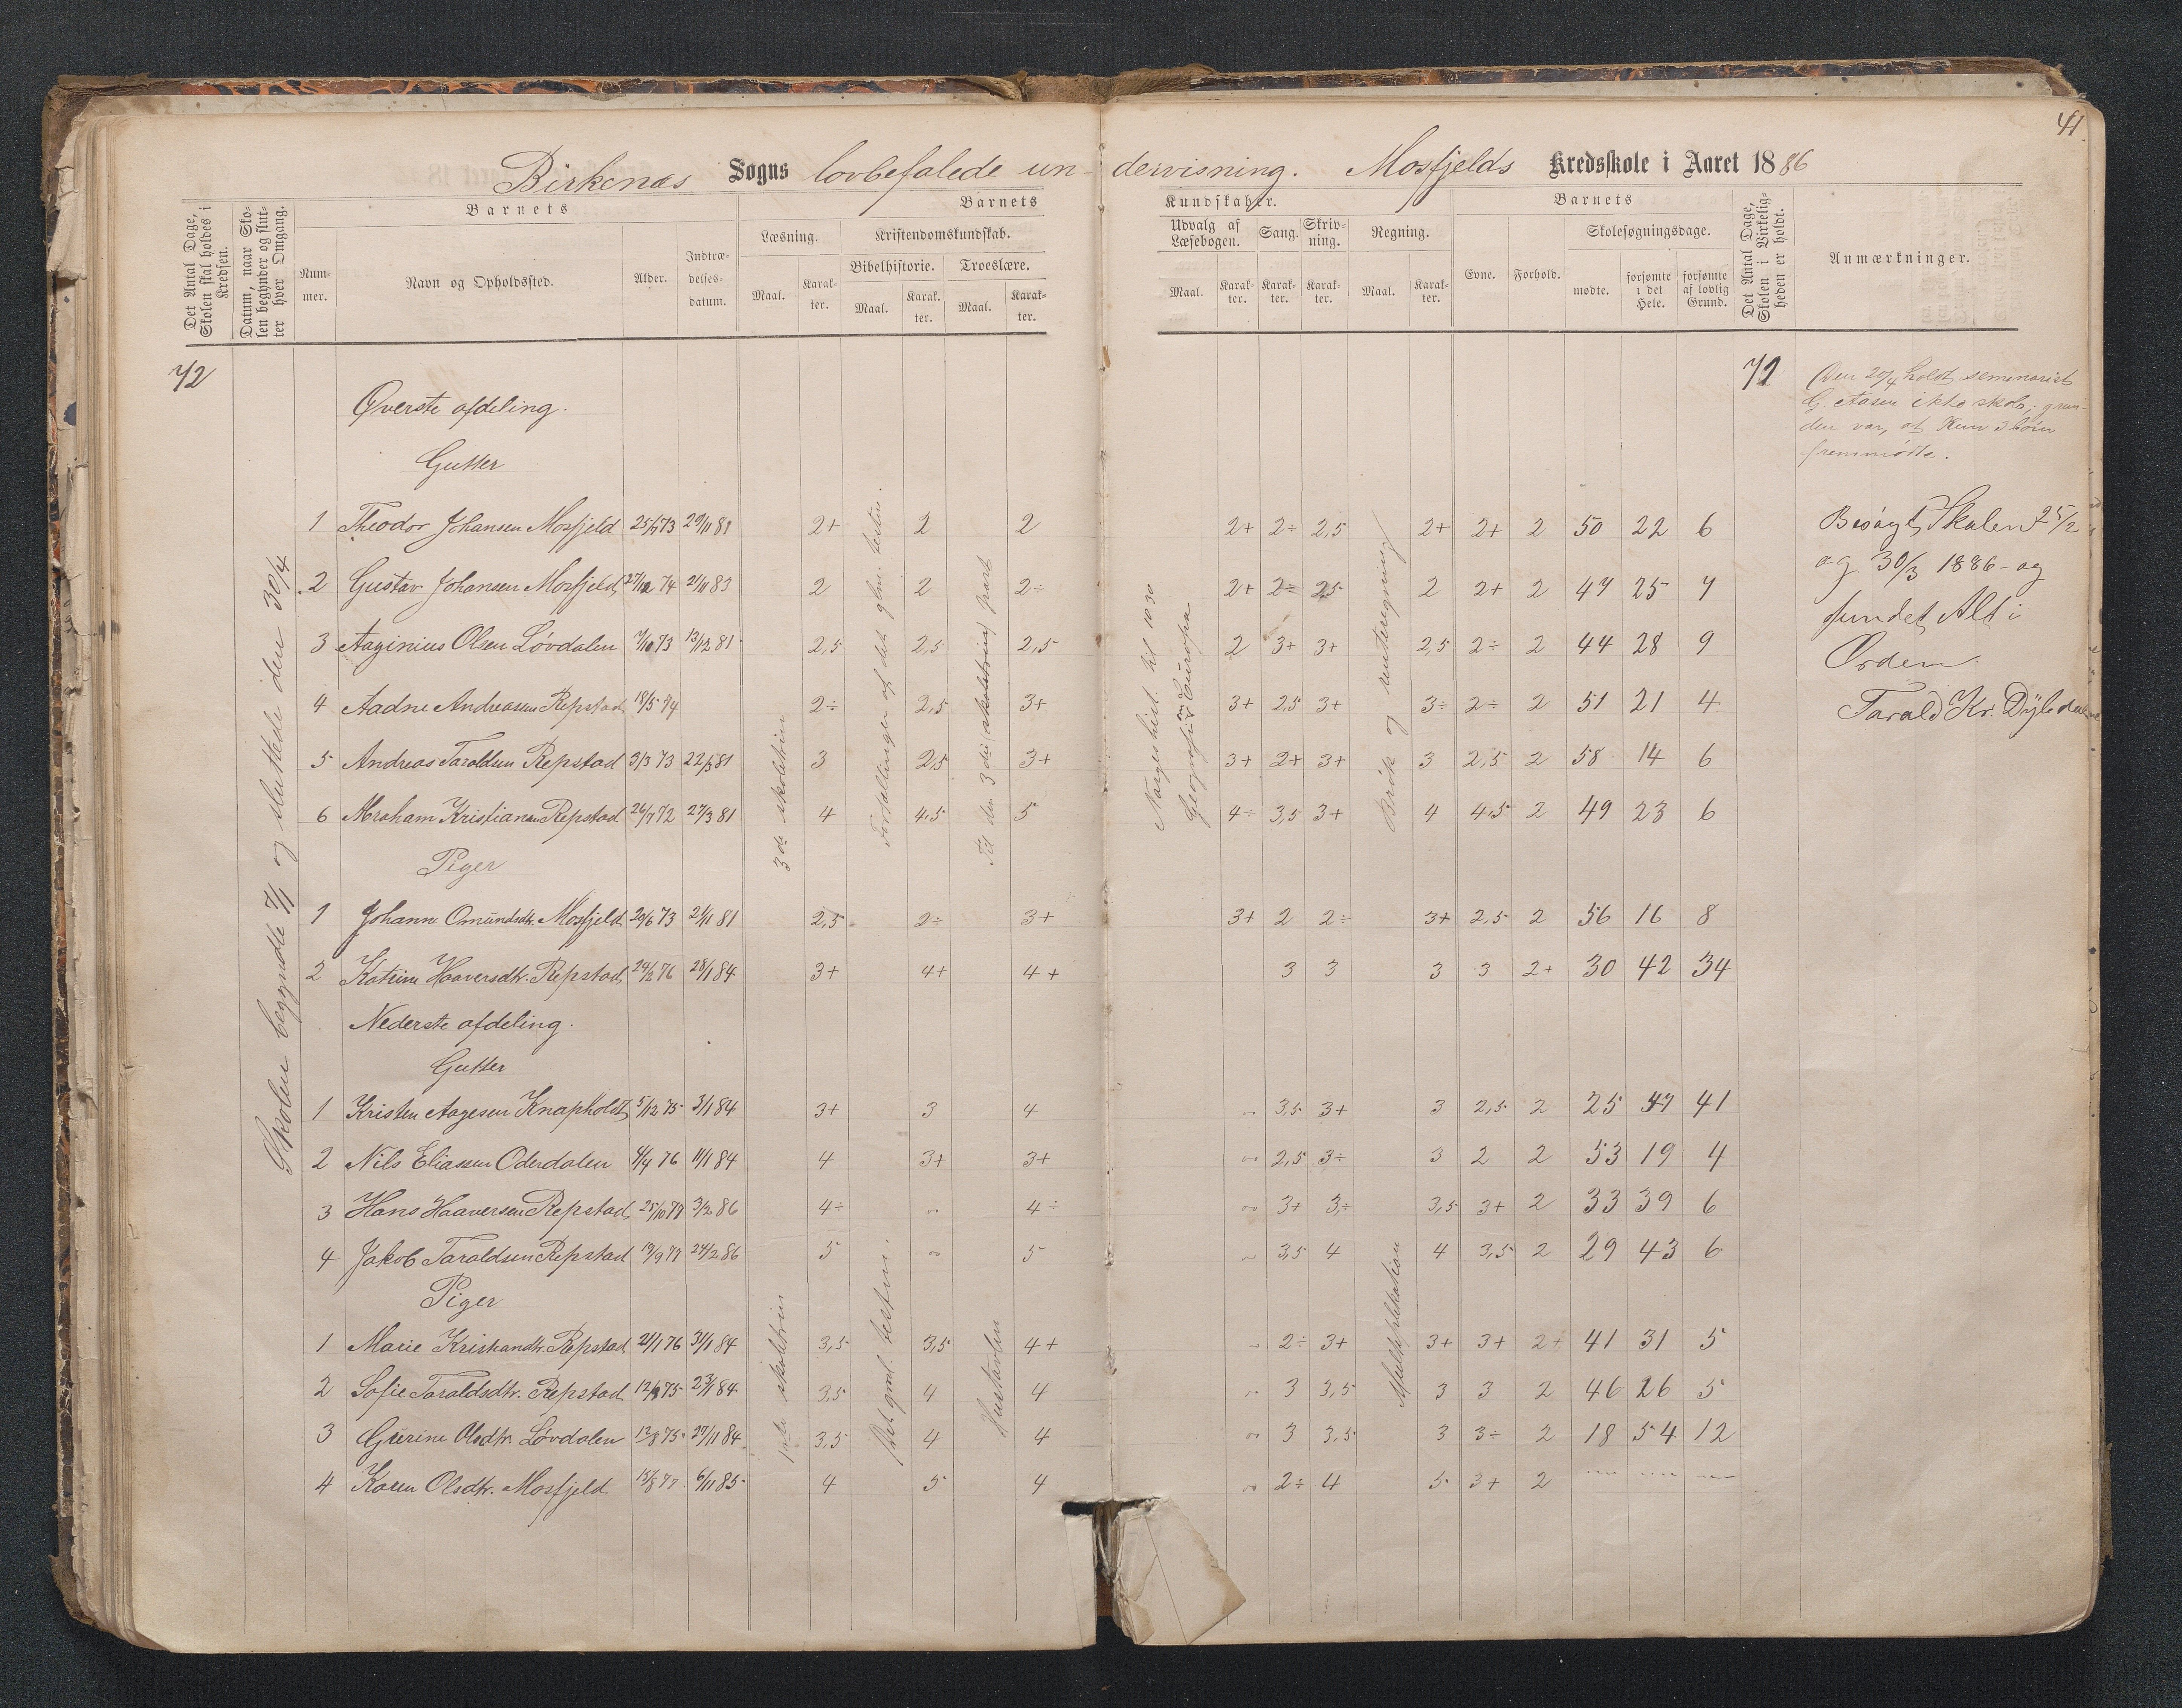 41
Birkenæs Sogns lovbefalede un- dervisning. Mosfjelds Kredsskole i Aaret 1886
Det Antal Dage, Skolen skal holdes i Kredsen.
Datum, naar Skolen begynder og slutter hver Omgang.
Barnets
Nummer.
Navn og Opholdssted.
Alder.
Indtrædelsesdatum.
Barnets Kundskaber.
Læsning.
Maal. Karakter.
Kristendomskundskab.
Bibelhistorie. Troeslære.
Maal. Karakter. Maal. Karakter.
Udvalg af Læsebogen.
Maal. Karakter.
Sang. Karakter.
Skrivning. Karakter.
Regning.
Maal. Karakter.
Barnets
Evne. Forhold.
Skolesøgningsdage.
mødte. forsømte i det Hele. forsømte af lovlig Grund.
Det Antal Dage, Skolen i Virkeligheden er holdt.
Anmærkninger.
72
Skolen begyndte 7/1 og sluttede den 30/4
Øverste afdeling.
Gutter
1 Theodor Johansen Mosfjeld 25/7 73 29/11 81 2+ 2 2 2+ 2÷ 2,5 2+ 2+ 2 50 22 6
2 Gustav Johansen Mosfjeld 27/12 74 21/11 83 2 2 2÷ 2+ 2÷ 2,5 2 2+ 2 47 25 7
3 Aaginius Olsen Løvdalen 7/10 73 13/12 81 2,5 2,5 2,5 2 3+ 3+ 2,5 2÷ 2 44 28 9
4 Aadne Andreasen Repstad 18/5 74 2÷ 2,5 3+ 3+ 2,5 3+ 3÷ 2÷ 2 51 21 4
5 Andreas Taraldsen Repstad 3/3 73 22/3 81 3 2,5 3+ 3+ 2+ 3+ 3 2,5 2 58 14 6
6 Abraham Kristiansen Repstad 26/7 72 27/3 81 4 4,5 5 4÷ 3,5 3+ 4 4,5 2 49 23 6
Piger
1 Johanne Omundsdtr. Mosfjeld 29/6 73 21/11 81 2,5 2÷ 3+ 3+ 2 2÷ 3+ 2,5 2 56 16 8
2 Katrine Haaversdtr. Repstad 24/2 76 28/1 84 3+ 4+ 4+ 3 3 3 3 2+ 30 42 34
3de skoletrin
Fortællinger af det glm. testm.
Til den 3die skoletrin part
Norges hist. til 1030
Geografi Europa
Brøk og rentesregning
Nederste afdeling.
Gutter
1 Kristen Aagesen Knapholst 5/12 75 3/1 84 3+ 3 4 " 3,5 3+ 3 2,5 2 25 47 41
2 Nils Eliassen Oderdalen 4/4 76 11/1 84 4 3+ 3+ " 2,5 3÷ 3 2 2 53 19 4
3 Hans Haaversen Repstad 25/10 77 3/2 86 4÷ " 4÷ " 3+ 3÷ 3,5 3+ 2 33 39 6
4 Jakob Taraldsen Repstad 19/9 77 24/2 86 5 " 5 " 3,5 4 4 3,5 2 29 43 6
Piger
1 Marie Kristiandtr. Repstad 21/1 76 31/1 84 3,5 3,5 4+ " 2÷ 3+ 3+ 3+ 2+ 41 31 5
2 Sofie Taraldsdtr. Repstad 12/9 75 23/1 84 3,5 4 4 " 3 3,5 3 3 2 46 26 5
3 Gurine Olsdtr. Løvdalen 12/8 75 27/11 84 3,5 4 4 " 3 3,5 3 3÷ 2 18 54 12
4 Karen Olsdtr. Mosfjeld 15/8 77 6/11 85 4 5 4 " 2÷ 4 5 3+ 2 " " "
1ste skoletrin
Det gml. testm.
Hustavlen
Multiplikation
72
Den 20/4 holdt seminarist
G. Aasen ikke skole; grun-
den var, at kun 3 børn
fremmødte.
Besøgt Skolen 25/2
og 30/3 1886 - og
fundet Alt i
Orden.
Tarald Kr.